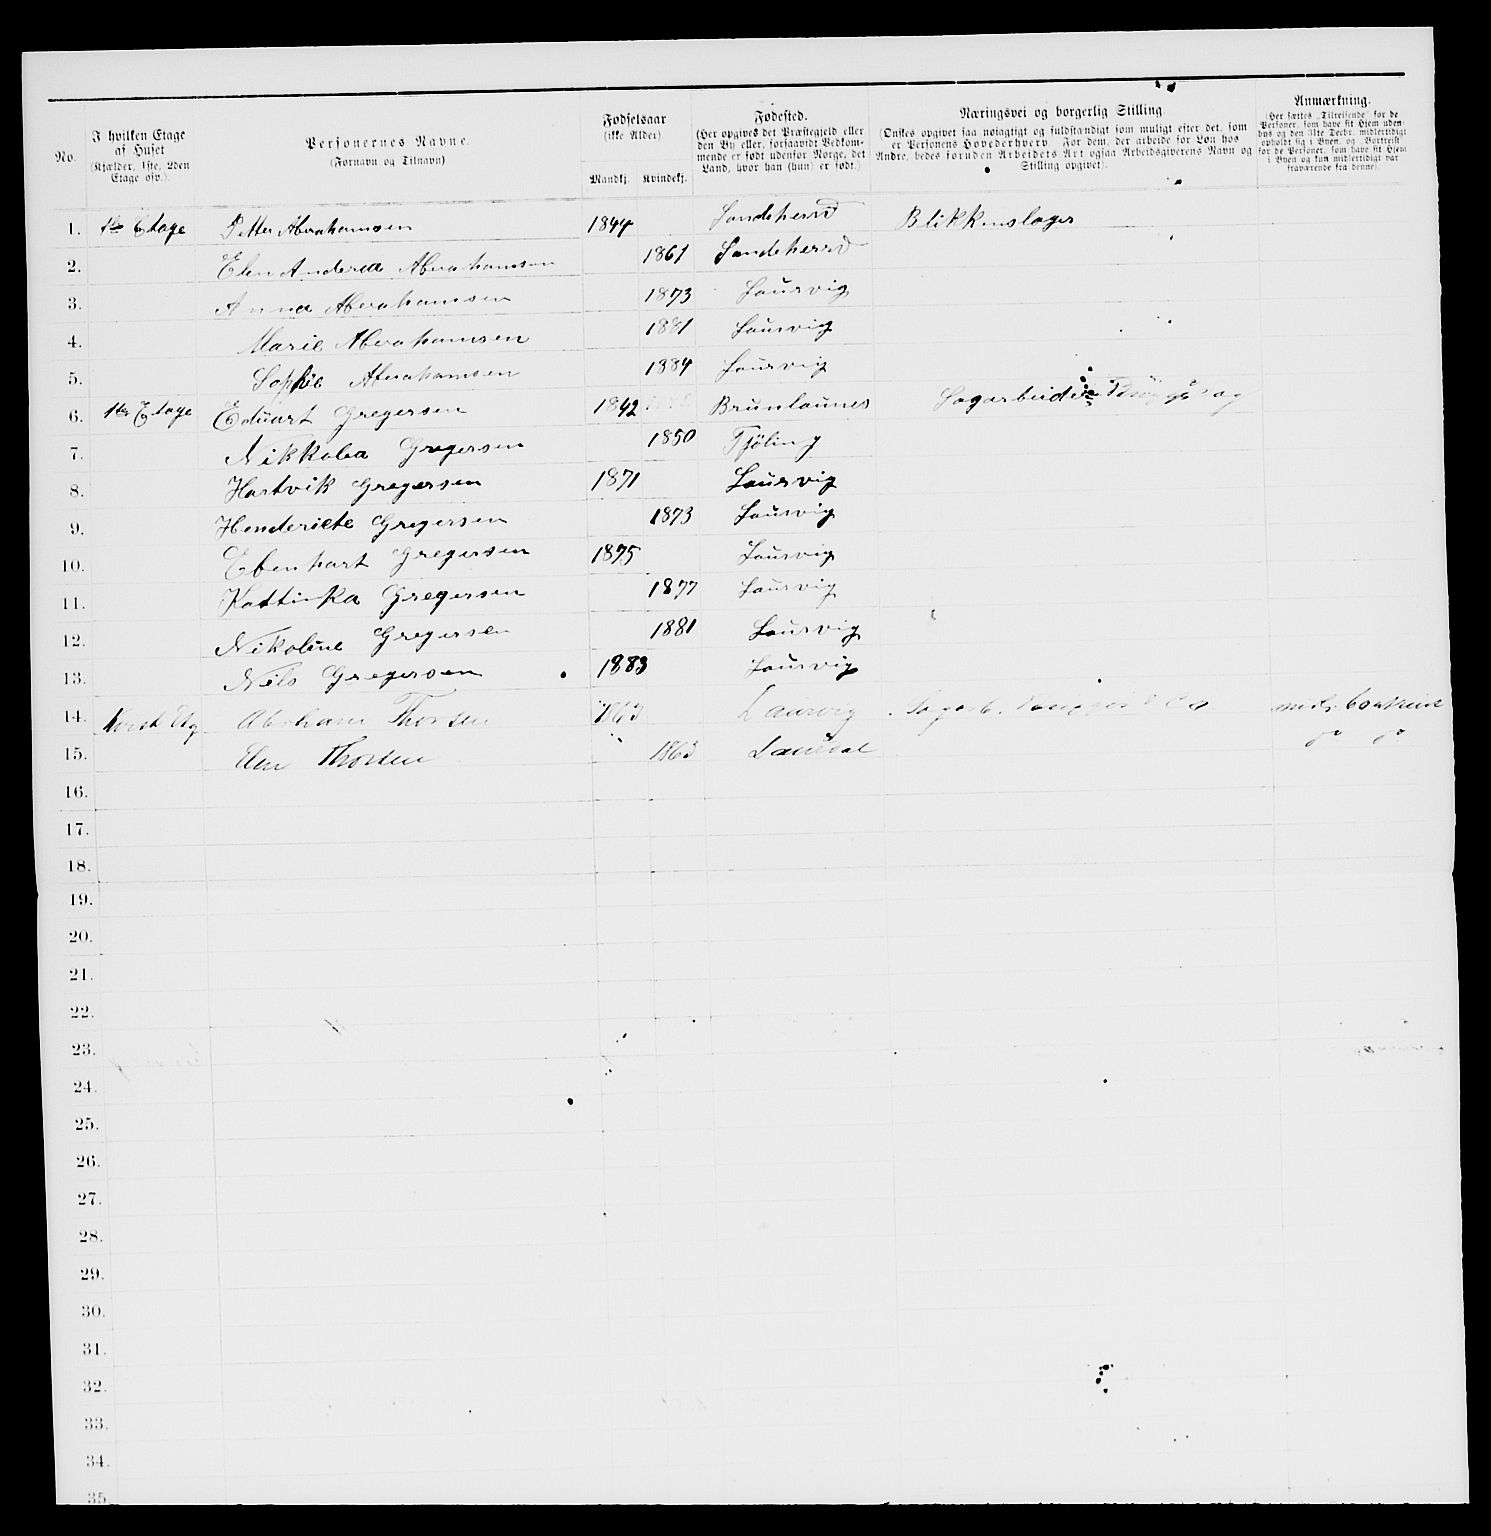 No.
I hvilken Etage af Huset (Kjælder, 1ste, 2den Etage osv.).
Personernes Navne. (Fornavn og Tilnavn)
Fødselsaar (ikke Alder).
Mandkj. Kvindekj.
Fødested. (Her opgives det Præstegjeld eller den By eller, forsaavidt Vedkommende er født udenfor Norge, det Land, hvor han (hun) er født.)
Næringsvei og borgerlig Stilling. (Ønskes opgivet saa nøiagtigt og fuldstændigt som muligt efter det, som er Personens Hovederhverv. For dem, der arbeide for Løn hos Andre, bedes foruden Arbeidets Art ogsaa Arbeidsgiverens Navn og Stilling opgivet).
Anmærkning. (Her sættes "Tilreisende" for de Personer, som have sit Hjem udenbys og den 31te Decbr. midlertidigt opholdt sig i Byen, og "Bortreist" for de Personer, som have sit Hjem i Byen og kun midlertidigt var fraværende fra denne).
1. 1ste Etage Petter Abrahamsen 1844 Sandeherred Blikkenslager
2. Elen Andrea Abrahamsen 1861 Sandeherred
3. Anna Abrahamsen 1873 Laurvig
4. Marie Abrahamsen 1881 Laurvig
5. Sophie Abrahamsen 1884 Laurvig
6. 1ste Etage Eduart Gregersen 1842 Brunlaunes Sagarbeider
7. Nikkolea Gregersen 1850 Tjöling
8. Hartvik Gregersen 1871 Laurvig
9. Henderikte Gregersen 1873 Laurvig
10. Ebenhart Gregersen 1875 Laurvig
11. Kattinka Gregersen 1877 Laurvig
12. Nikoline Gregersen 1881 Laurvig
13. Nils Gregersen 1883 Laurvig
14. Abraham Thorsen 1863 Laurvig
15. Elen Thorsen 1863 Laurdal
16.
17.
18.
19.
20.
21.
22.
23.
24.
25.
26.
27.
28.
29.
30.
31.
32.
33.
34.
35.